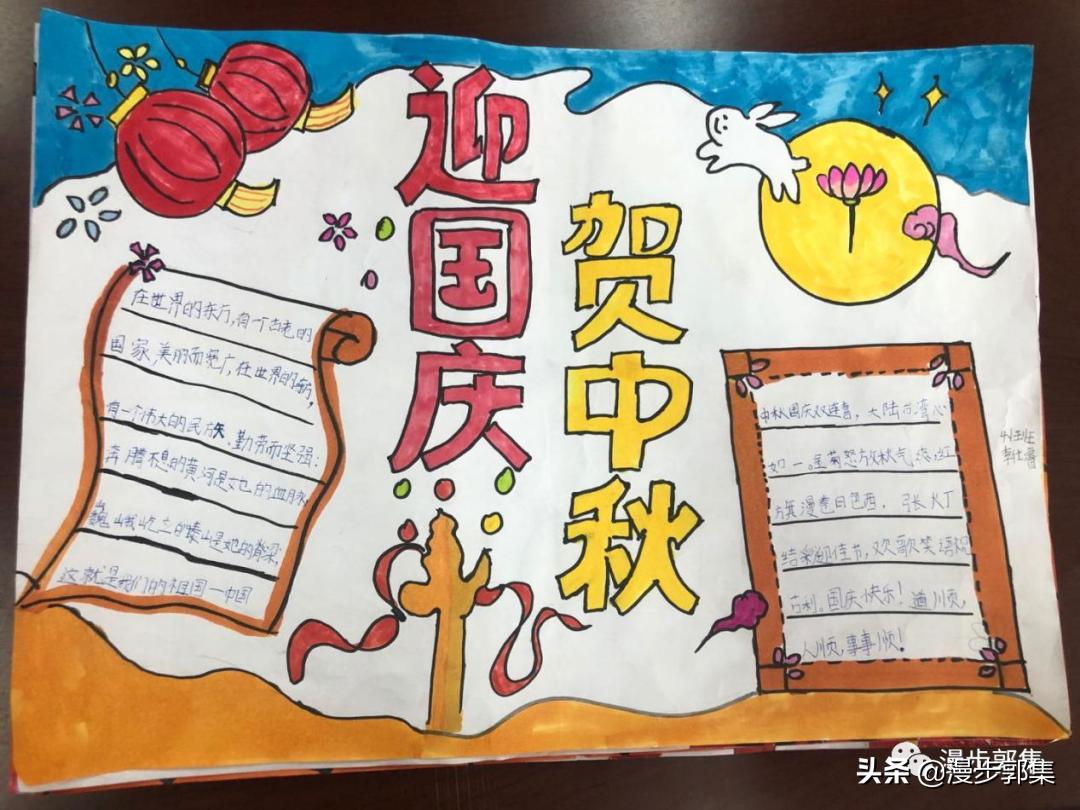 迎国庆
贺中秋
在世界的东方,有一个古老的
国家,美的而宽广,在世界的东方,
有一个伟大的民族,勤劳而坚强:
奔腾不想的黄河是她的血脉,
巍峨屹立的泰山是她的脊梁,
这就是我们的祖国一中国
中秋国庆双连喜,大陆台湾心
如一。金菊怒放秋气怒,红
旗漫卷日色西,张灯
结彩迎佳节,欢歌笑语祝
吉利。国庆快乐!道顺,
人顺,事事顺!
漫步郭集
头条@漫步郭集